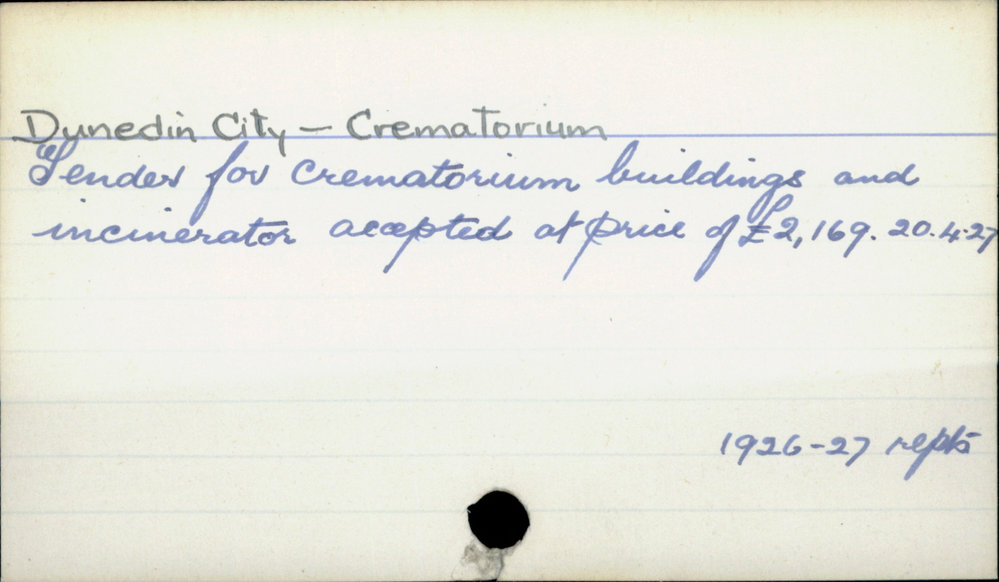 Dunedin City – Crematorium
Tender for Crematorium buildings and
incinerator accepted at price of £2,169. 20.4.27
1926-27 repts